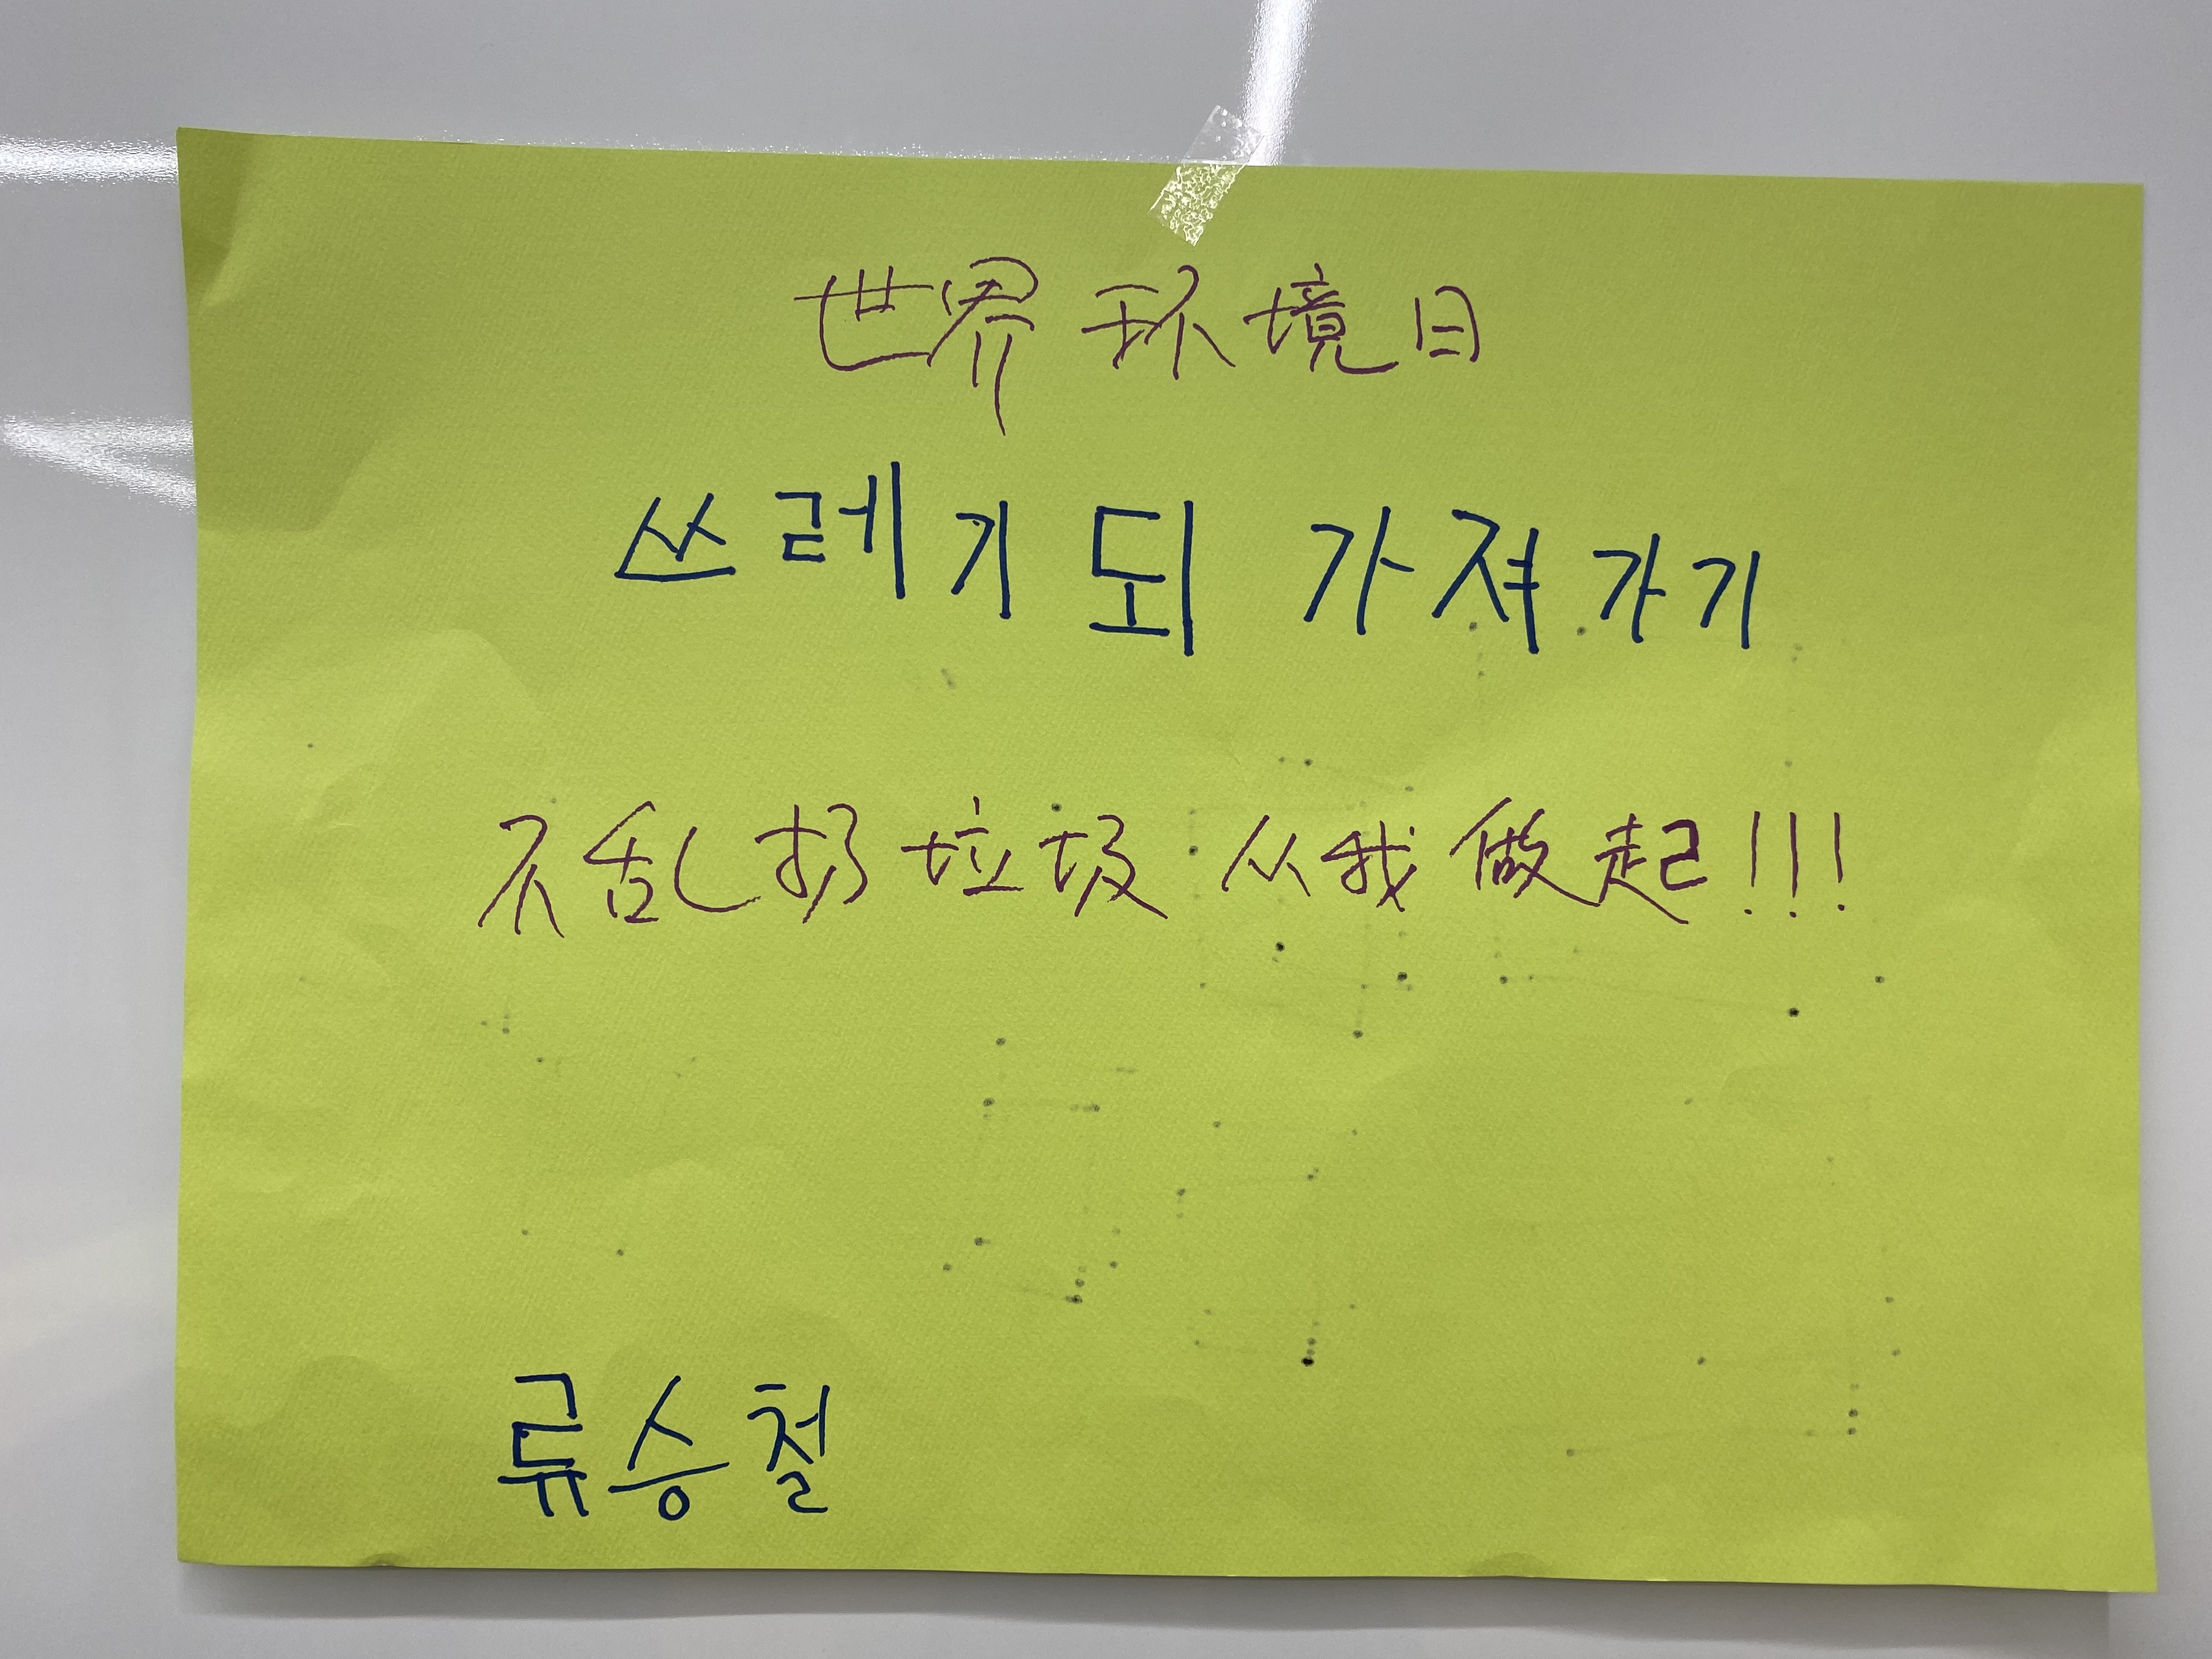 世界环境日
쓰레기 되가져가기
不乱扔垃圾 从我做起!!!
류승철